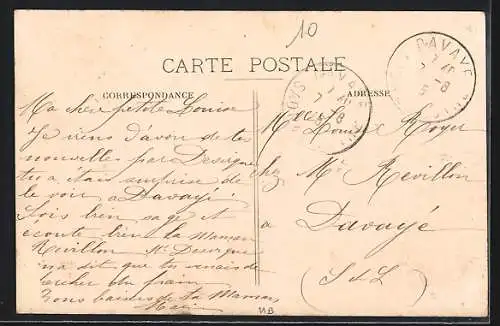 10
CARTE POSTALE
CORRESPONDANCE
ADRESSE
DAVAYÉ
Ma chère petite Louise
Je viens d'avoir de tes
nouvelles par Desorgue
tu a étais surprise de
le voir à Davayé
Sois bien sage et
écoute bien la Maman
Revillon Mr Desorgue
m'a dit que tu venais de
chercher du pain
Bons baisers de ta Maman
Mlle Louise Royer
chez M. Revillon
a Davayé
(S & L)